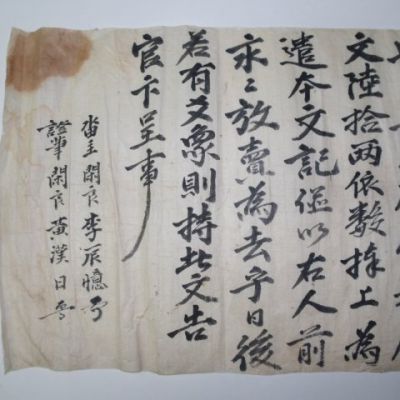 文陸拾两依數捧上為
遣本文記並以右人前
永〻放賣為去乎日後
若有爻象則持此文告
官卞呈事
畓主閑良李辰憶
證筆閑良黃漢日